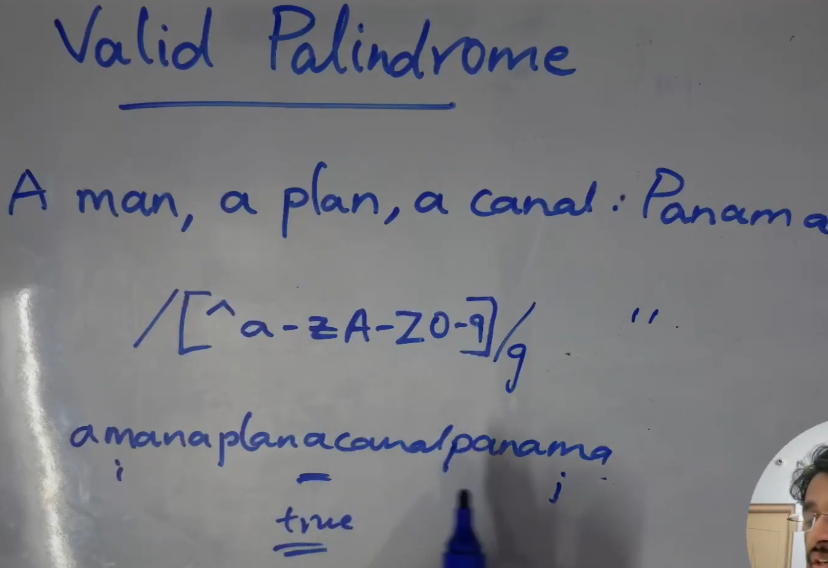 Valid Palindrome
A man, a plan, a canal: Panama
/[^a-zA-Z0-9]/g "
amanaplanacanalpanama
i j
true